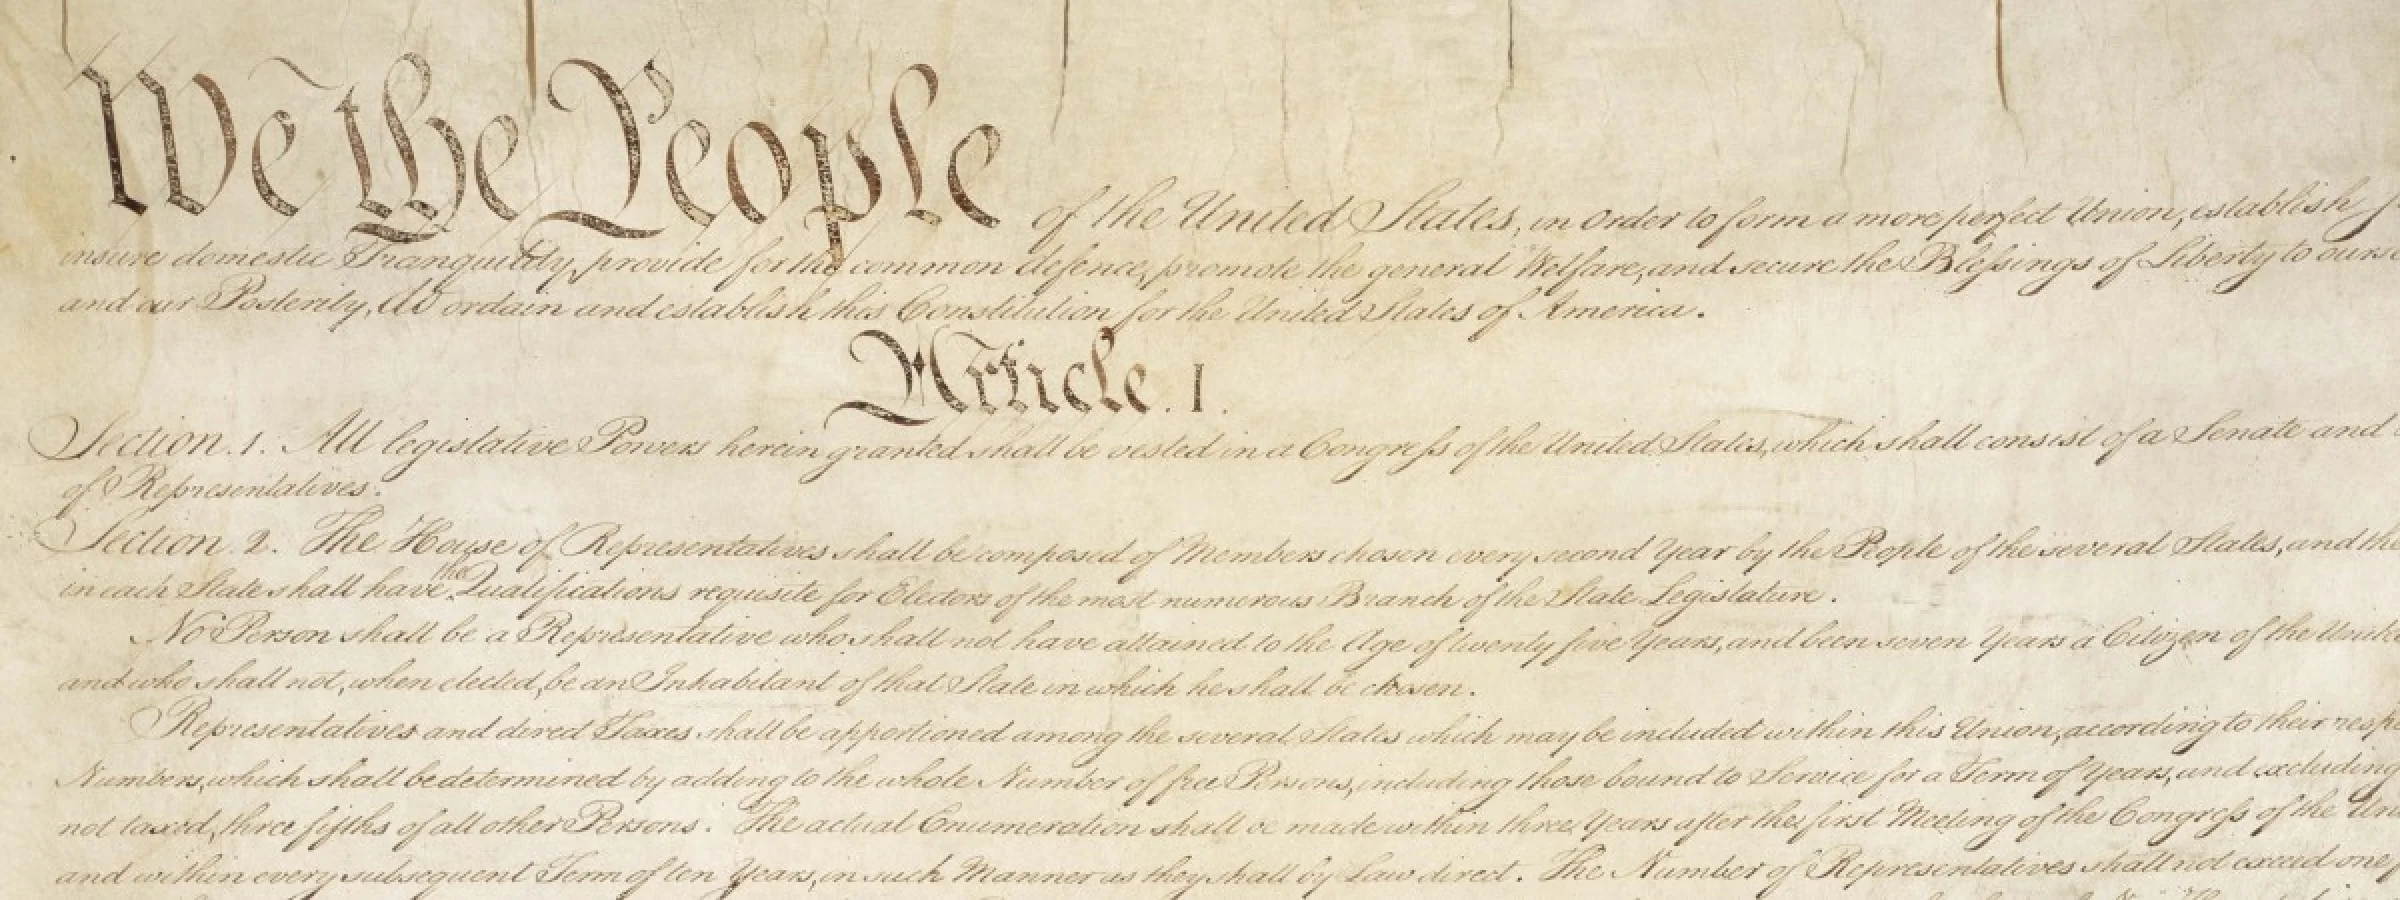 We the People of the United States, in Order to form a more perfect Union, establish
insure domestic Tranquility, provide for the common defence, promote the general Welfare, and secure the Blessings of Liberty to
and our Posterity, do ordain and establish this Constitution for the United States of America.
Article. I.
Section. 1. All legislative Powers herein granted shall be vested in a Congress of the United States, which shall consist of a Senate and
of Representatives.
Section. 2. The House of Representatives shall be composed of Members chosen every second Year by the People of the several States, and the
in each State shall have the Qualifications requisite for Electors of the most numerous Branch of the State Legislature.
No Person shall be a Representative who shall not have attained to the Age of twenty five Years, and been seven Years a Citizen of the
and who shall not, when elected, be an Inhabitant of that State in which he shall be chosen.
Representatives and direct Taxes shall be apportioned among the several States which may be included within this Union, according to their
Numbers, which shall be determined by adding to the whole Number of free Persons, including those bound to Service for a Term of Years, and excluding
not taxed, three fifths of all other Persons. The actual Enumeration shall be made within three Years after the first Meeting of the Congress of the
and within every subsequent Term of ten Years, in such Manner as they shall by Law direct. The Number of Representatives shall not exceed one